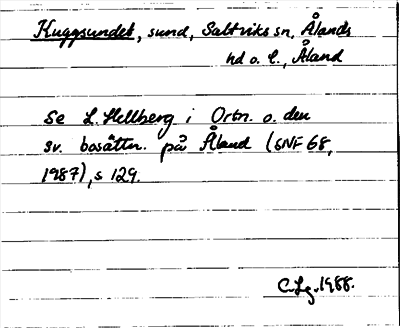 Kuggsundet, sund, Saltviks sn, Ålands
hd o. l., Åland
Se L. Hellberg i Ortn. o. den
sv. bosättn. på Åland (SNF 68,
1987), s 129.
C. Lg. 1988.